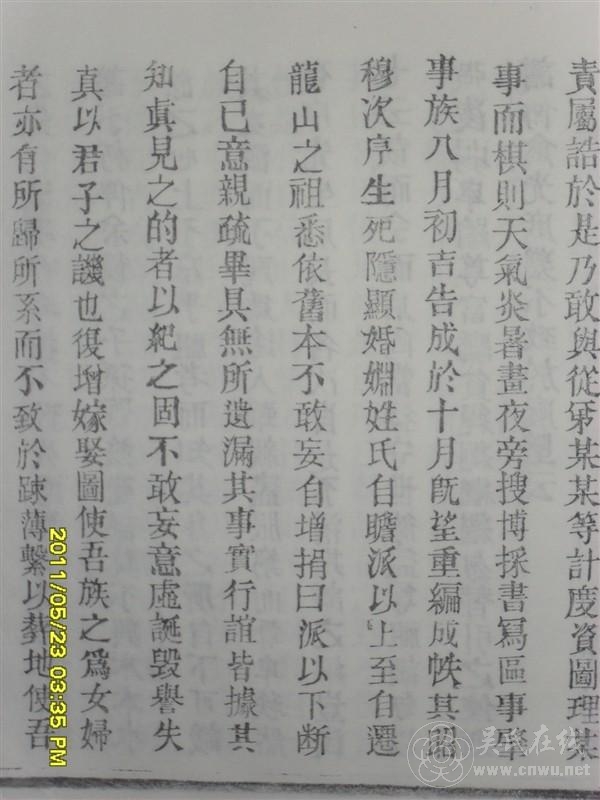 責屬誥於是乃敢與從弟某某等計度資圖理某
事而棋則天氣炎暑晝夜旁搜博採書寫區事舉
事族八月初吉告成於十月既望重編成帙其昭
穆次序生死隱顯婚姻姓氏自瞻派以上至自遷
龍山之祖悉依舊本不敢妄自增捐曰派以下斷
自已意親疏畢具無所遺漏其事實行誼皆據其
知真見之的者以紀之固不敢妄意虛誕毀譽失
真以君子之譏也復增嫁娶圖使吾族之為女婦
者亦有所歸所系而不致於踈薄繫以葬地使吾
2011/05/23 03:35 PM
吳氏在线
www.cnwu.net